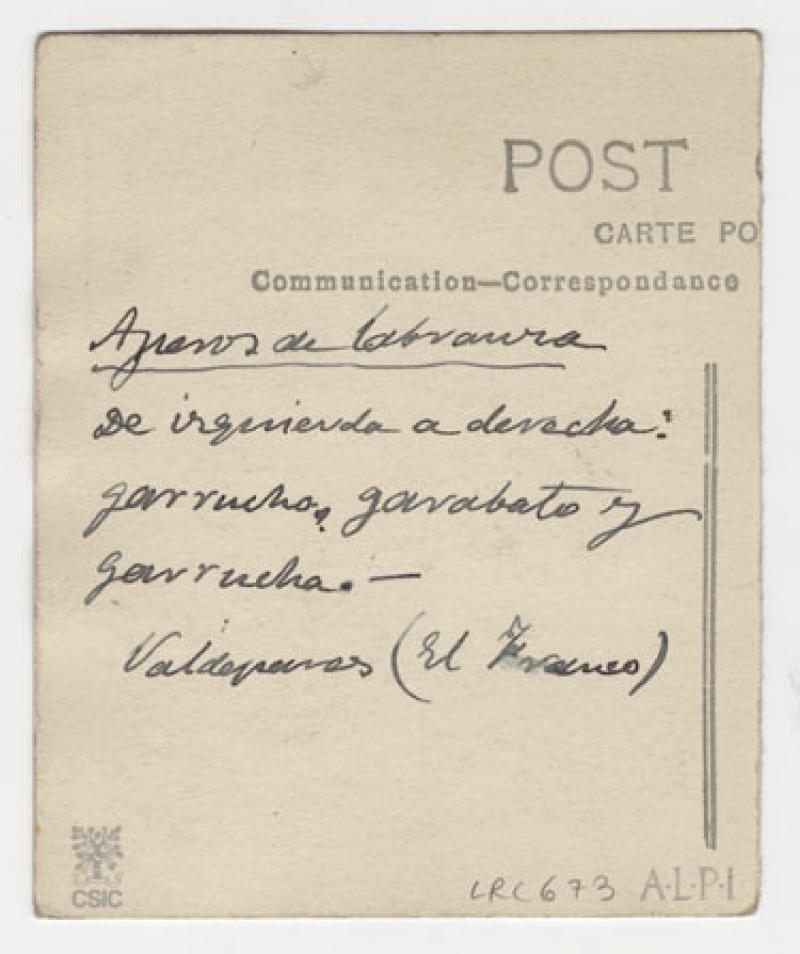 POST
CARTE PO
Communication—Correspondance
Aperos de labranza
De izquierda a derecha:
garrucho, garabato y
garrucha.—
Valdepares (El Franco)
CSIC
LRC 673 A·L·P·I